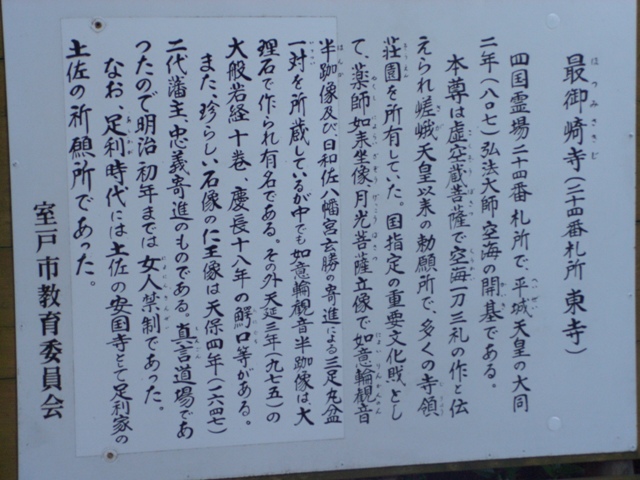 最御崎寺(二十四番札所 東寺)
四国霊場二十四番札所で、平城天皇の大同
二年(八〇七)弘法大師空海の開基である。
本尊は虚空蔵菩薩で空海一刀三礼の作と伝
えられ嵯峨天皇以来の勅願所で、多くの寺領
荘園を所有していた。国指定の重要文化財とし
て、薬師如来坐像、月光菩薩立像で如意輪観音
半跏像及び、日和佐八幡宮玄勝の寄進による三足丸盆
一対を所蔵しているが中でも如意輪観音半跏像は大
理石で作られ有名である。その外天延三年(九七五)の
大般若経十巻、慶長十八年の鰐口等がある。
また、珍らしい石像の仁王像は天保四年(一六四七)
二代藩主、忠義寄進のものである。真言道場であ
つたので明治初年までは女人禁制であった。
なお、足利時代には土佐の安国寺として足利家の
土佐の祈願所であった。
室戸市教育委員会